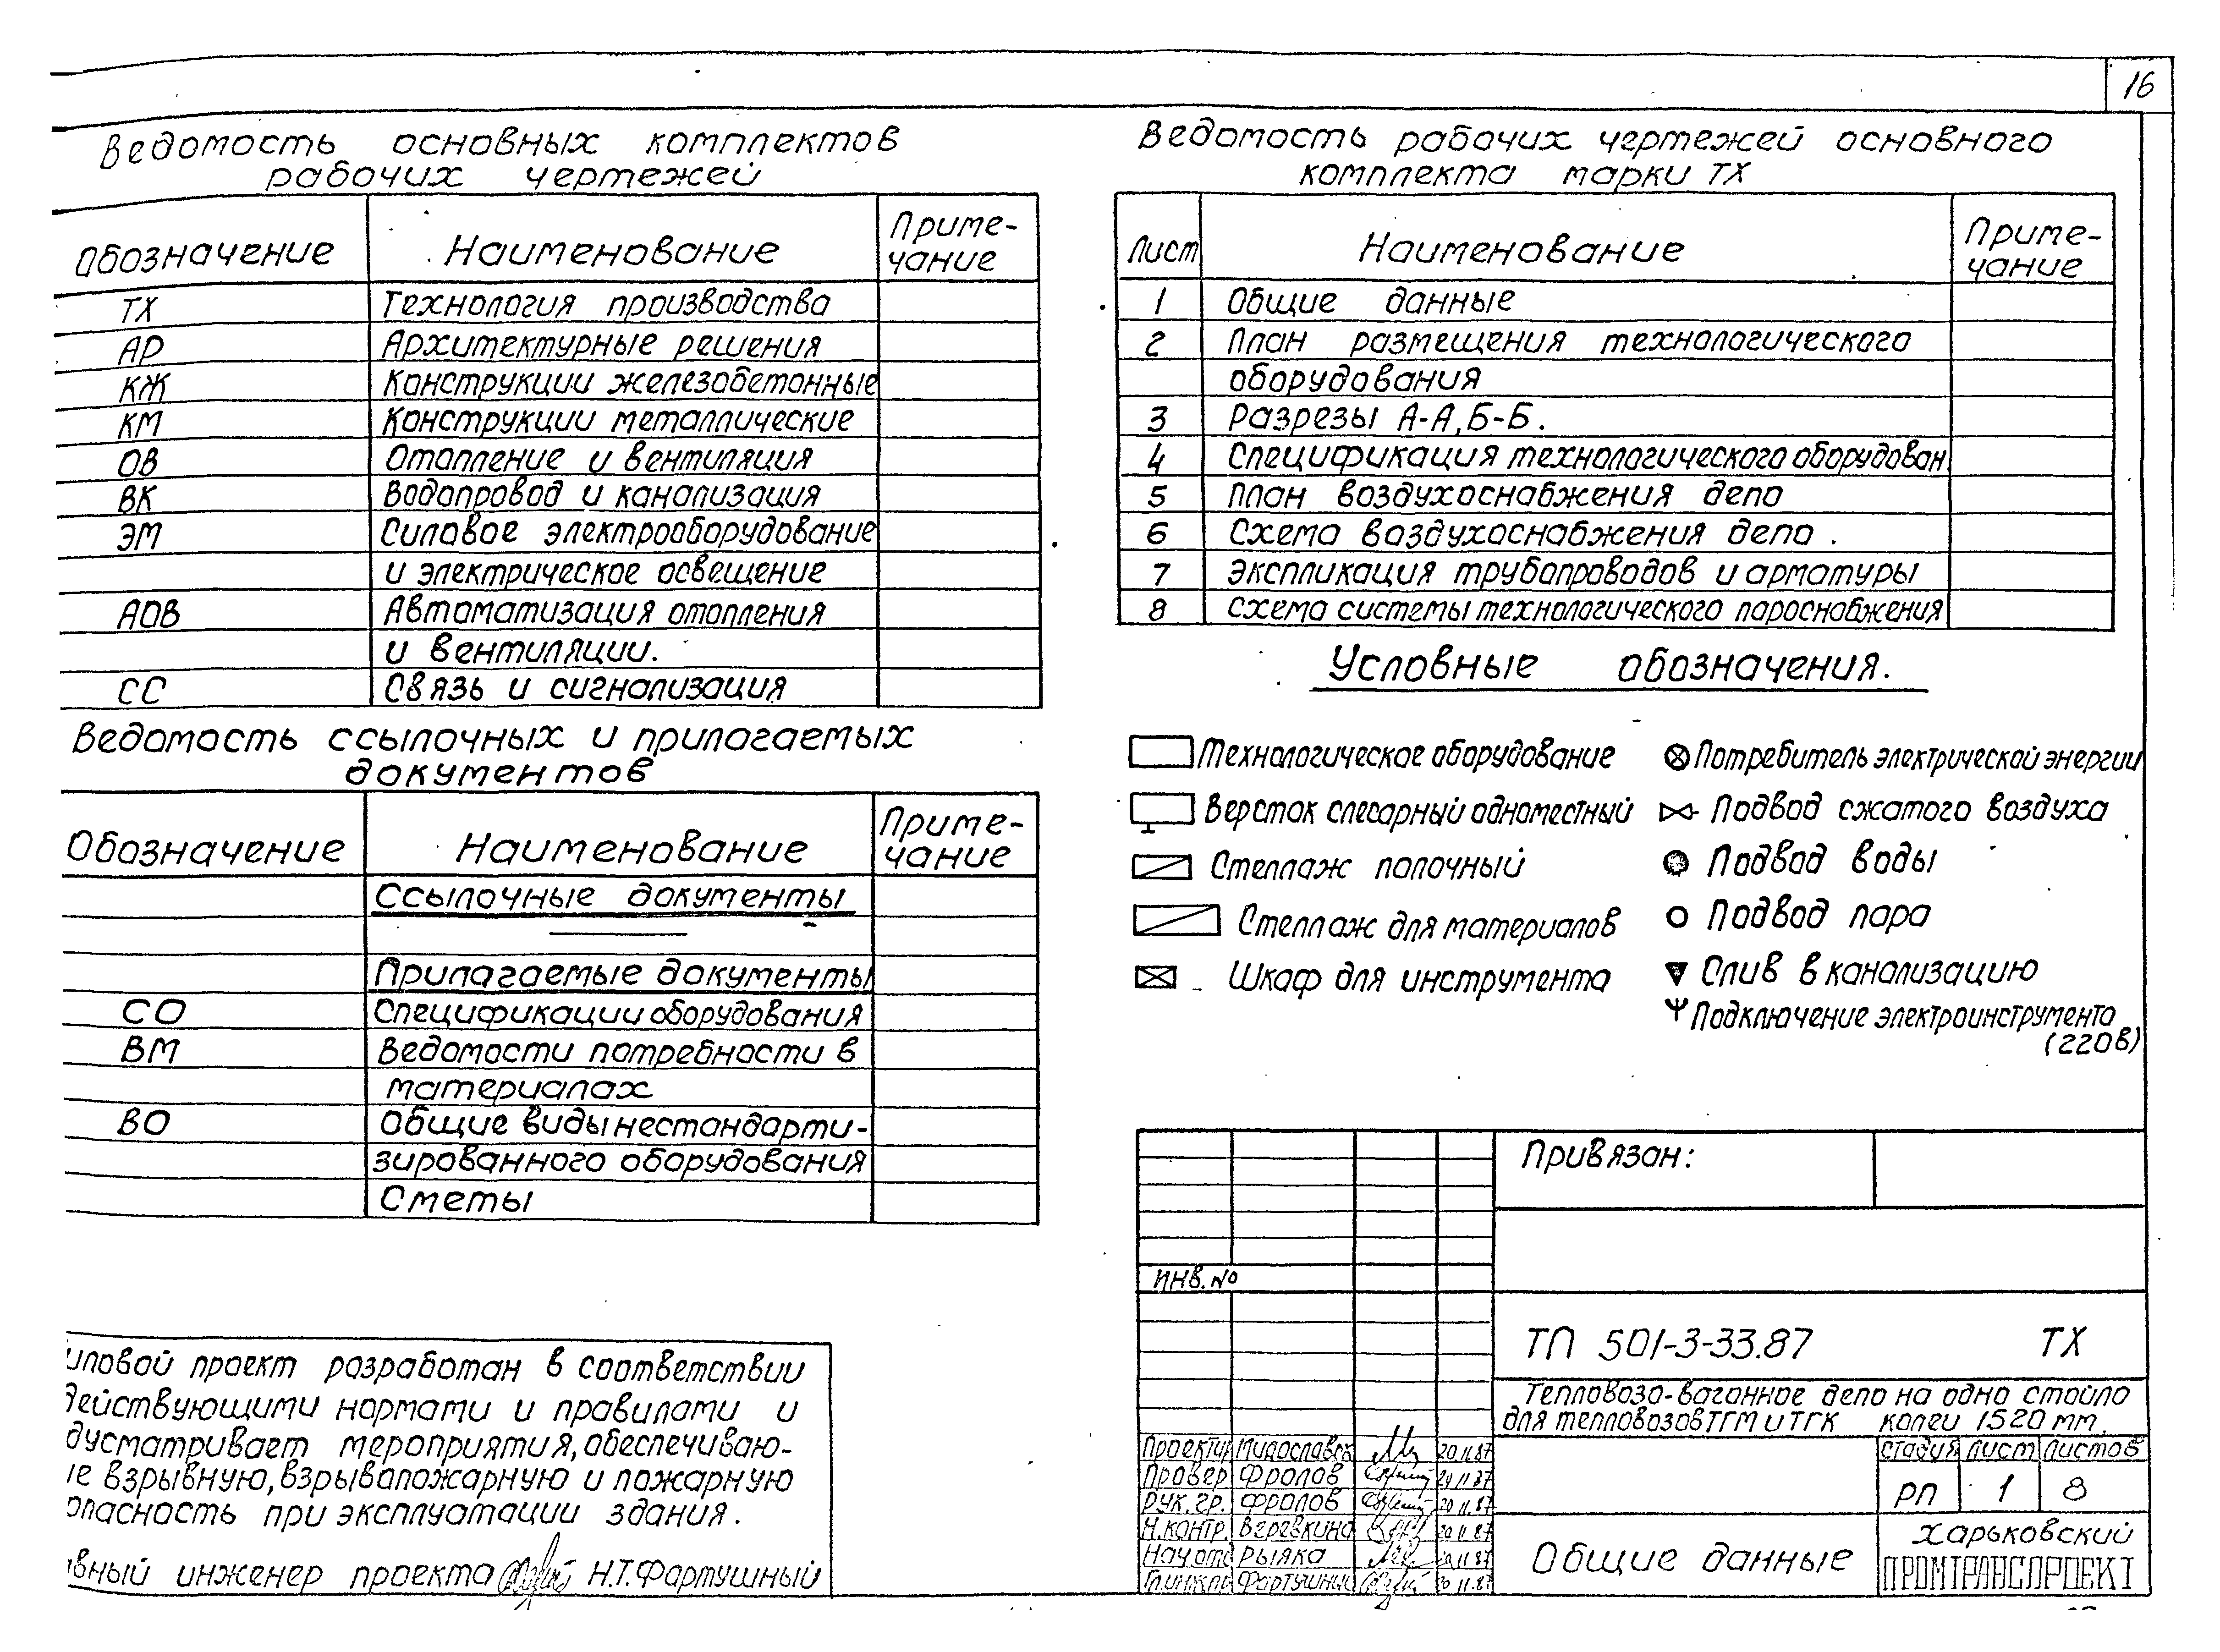 16
Ведомость основных комплектов
рабочих чертежей
Обозначение Наименование Приме-
чание
ТХ Технология производства
АР Архитектурные решения
КЖ Конструкции железобетонные
КМ Конструкции металлические
ОВ Отопление и вентиляция
ВК Водопровод и канализация
ЭМ Силовое электрооборудование
и электрическое освещение
АОВ Автоматизация отопления
и вентиляции.
СС Связь и сигнализация
Ведомость ссылочных и прилагаемых
документов
Обозначение Наименование Приме-
чание
Ссылочные документы
Прилагаемые документы
СО Спецификации оборудования
ВМ Ведомости потребности в
материалах
ВО Общие виды нестандарти-
зированного оборудования
Сметы
иповой проект разработан в соответствии
действующими нормами и правилами и
дусматривает мероприятия, обеспечиваю-
ие взрывную, взрывопожарную и пожарную
опасность при эксплуатации здания.
авный инженер проекта Н.Т.Фартушный
Ведомость рабочих чертежей основного
комплекта марки ТХ
Лист Наименование Приме-
чание
1 Общие данные
2 План размещения технологического
оборудования
3 Разрезы А-А, Б-Б.
4 Спецификация технологического оборудован
5 План воздухоснабжения депо
6 Схема воздухоснабжения депо.
7 Экспликация трубопроводов и арматуры
8 Схема системы технологического пароснабжения
Условные обозначения.
Технологическое оборудование
Верстак слесарный одноместный
Стеллаж полочный
Стеллаж для материалов
Шкаф для инструмента
Потребитель электрической энергии
Подвод сжатого воздуха
Подвод воды
Подвод пара
Слив в канализацию
Подключение электроинструмента
(220в)
Привязан:
Инв. №
ТП 501-3-33.87 ТХ
Тепловозо-вагонное депо на одно стойло
для тепловозов ТГМ и ТГК колеи 1520 мм.
Проектир Милославск 20.11.87
Провер Фролов 20.11.87
Рук. гр. Фролов 20.11.87
Н.контр. Веревкина 20.11.87
Нач отд Рыяка 20.11.87
Гл.инж.пр Фартушный 20.11.87
Стадия Лист Листов
РП 1 8
Общие данные
Харьковский
ПРОМТРАНСПРОЕКТ